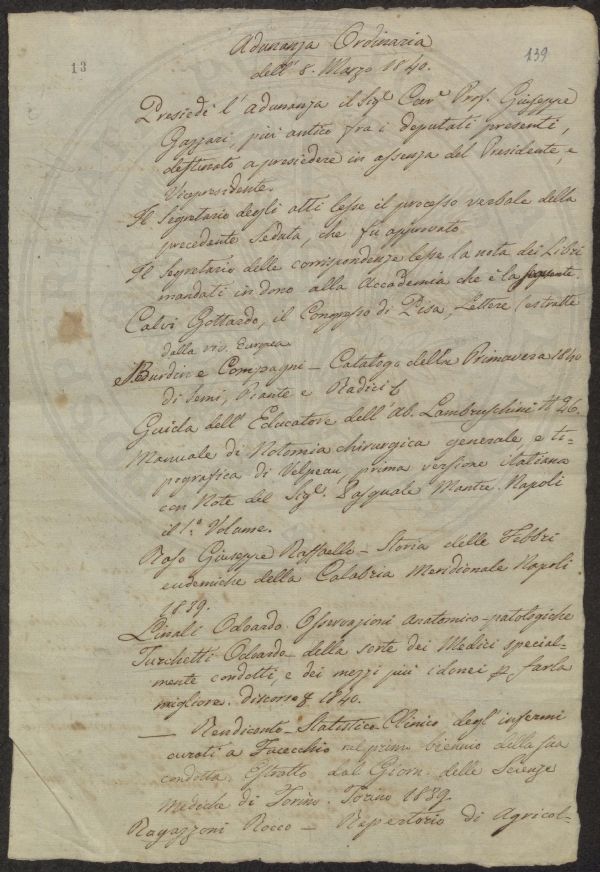 Adunanza Ordinaria
139
13
dell' 8. Marzo 1840.
Presiedè l'adunanza il Sigr. Cavr. Prof. Giuseppe
Gazzeri, più antico fra i deputati presenti,
destinato a presiedere in assenza del Presidente, e
Vicepresidente.
Il Segretario degli atti lesse il processo verbale della
precedente Seduta, che fu approvato
Il Segretario delle corrispondenze lesse la nota dei Libri
mandati in dono alla Accademia che è la seguente.
Calvi Gottardo, il Congresso di Pisa, Lettere (estratte
dalla riv. Europea
Burdin e Compagni – Catalogo della Primavera 1840
di Semi, Piante e Radici
Guida dell'Educatore dell'Ab. Lambruschini N. 26.
Manuale di Notomia chirurgica generale, e to-
pografica di Velpeau prima versione italiana
con Note del Sigr. Pasquale Manre. Napoli
il 1.o Volume.
Raso Giuseppe Raffaello – Storia delle Febbri
endemiche della Calabria Meridionale Napoli
1839.
Linoli Odoardo. Osservazioni anatomico-patologiche
Turchetti Odoardo della sorte dei Medici special-
mente condotti, e dei mezzi più idonei p farla
migliore. discorso 1840.
— Rendiconto-Statistico-Clinico degl'infermi
curati a Fucecchio nel primo biennio della sua
condotta. Estratto dal Giorn. delle Scienze
Mediche di Torino. Torino 1839.
Ragazzoni Rocco – Repertorio di Agricol-